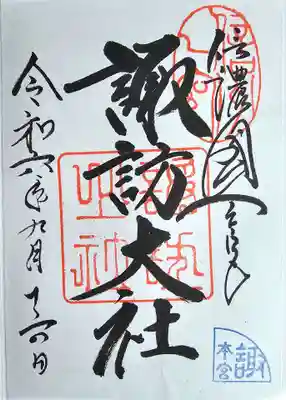 信濃國一宮
諏訪大社
令和六年九月十四日
諏
本宮